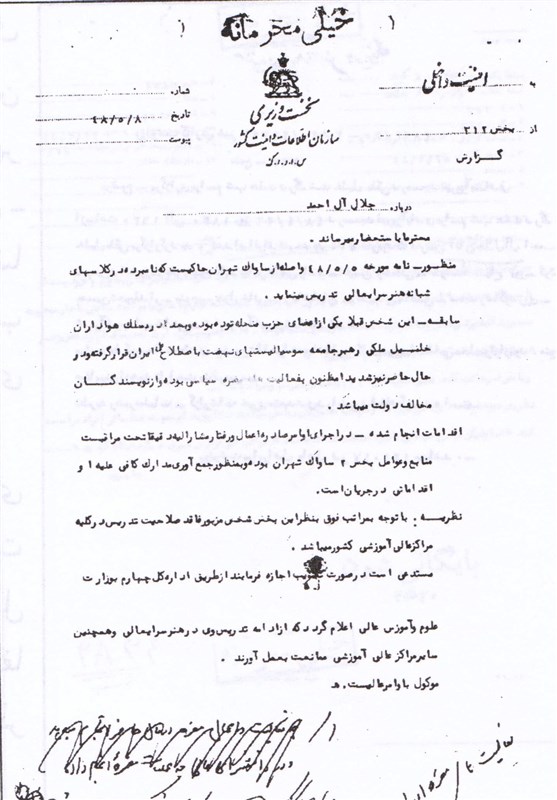 خیلی محرمانه
نخست وزیری
سازمان اطلاعات و امنیت کشور
س.ا.و.ا.ک
به امنیت داخلی
از بخش ۳۱۲
گزارش
شماره
تاریخ ۴۸/۵/۸
پیوست
درباره جلال آل احمد
محترما باستحضار میرساند.
منظور: نامه مورخه ۴۸/۵/۵ واصله از ساواک تهران حاکیست که نامبرده در کلاسهای
شبانه هنرسرایعالی به تدریس مشغول میباشد.
سابقه: این شخص قبلا یکی از اعضای حزب منحله توده بوده و بعدا در سلک هواداران
خلیل ملکی رهبر جامعه سوسیالیستهای نهضت باصطلاح ملی ایران قرار گرفته و در
حال حاضر نیز شدیدا مظنون بفعالیت های مضره سیاسی بوده و از نویسندگان
مخالف دولت میباشد.
اقدامات انجام شده – در اجرای اوامر صادره اعمال و رفتار مشارالیه دقیقا تحت مراقبت
منابع و عوامل بخش ۲ ساواک تهران بوده و بمنظور جمع آوری مدارک کافی علیه او
اقداماتی در جریان است.
نظریه: با توجه بمراتب فوق بنظر این بخش شخص مزبور فاقد صلاحیت تدریس در کلیه
مراکز عالی آموزشی کشور میباشد.
مستدعی است در صورت تصویب اجازه فرمایند از طریق اداره کل چهارم بوزارت
علوم و آموزش عالی اعلام گردد که از ادامه تدریس وی در هنرسرایعالی و همچنین
سایر مراکز عالی آموزشی ممانعت بعمل آورند.
موکول باوامر عالیست. هـ